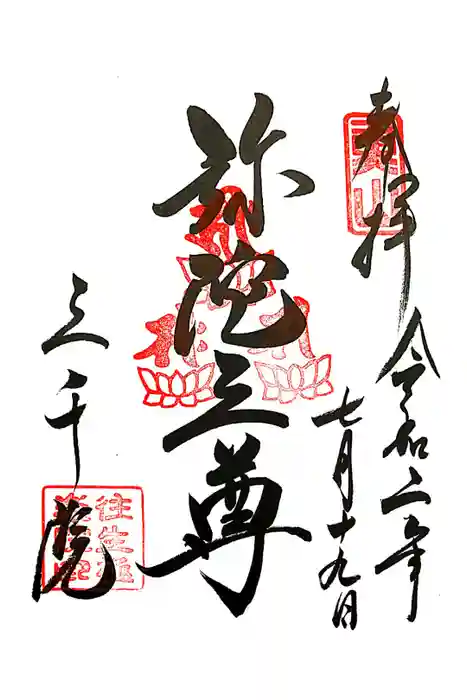 奉拝
令和二年
七月十九日
弥陀三尊
三千院
往生極